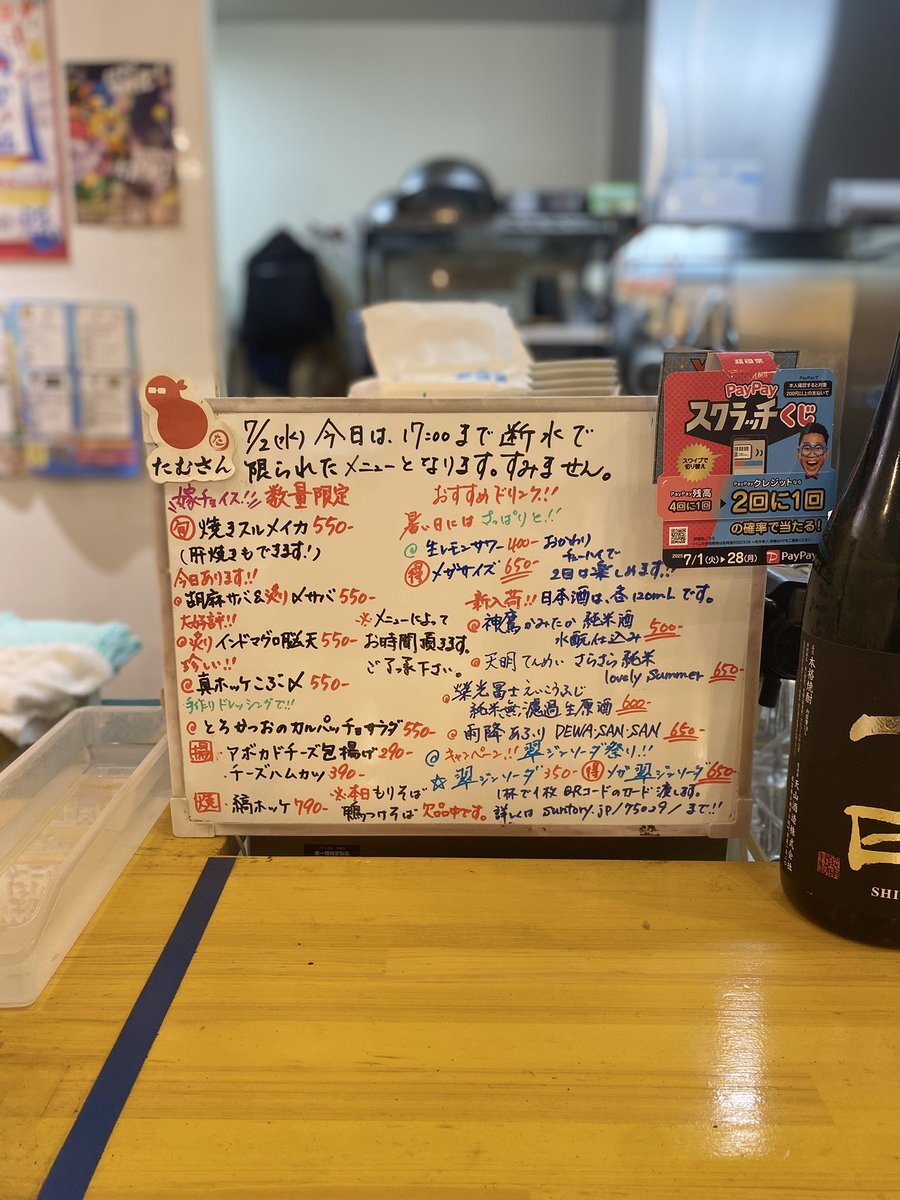 7/2(水) 今日は、17:00まで断水で
限られたメニューとなります。すみません。
たむさん
嫁チョイス!! 数量限定
旬 焼きスルメイカ 550-
(肝焼きもできます!)
今日あります!!
胡麻サバ&炙り〆サバ 550-
大好評!!
炙りインドマグロ脳天 550-
珍しい!!
真ホッケこぶ〆 550-
手作りドレッシングで!!
とろかつおのカルパッチョサラダ 550-
揚 アボカドチーズ包揚げ 290-
チーズハムカツ 390-
焼 縞ホッケ 790-
※メニューによって
お時間頂きます。
ご了承下さい。
※本日もりそば
鴨つけそば 欠品中です。
おすすめドリンク!!
暑い日にはさっぱりと!!
生レモンサワー 400- おかわり
チューハイで
2回は楽しめます!!
得 メガサイズ 650-
新入荷!! 日本酒は、各120mLです。
神鷹 かみたか 純米酒
水酛仕込み 500-
天明 てんめい さらさら純米
lovely Summer 650-
栄光冨士 えいこうふじ
純米無濾過生原酒 600-
雨降 あふり DEWA.SAN.SAN 650-
キャンペーン!! 翠ジンソーダ祭り!!
☆翠ジンソーダ 350- 得 メガ翠ジンソーダ 650-
1杯で1枚QRコードのカード渡します。
詳しくは suntory.jp/75029/ まで!!
超福祭
PayPay
スクラッチくじ
PayPayで
本人確認すると対象
200円以上の支払いで
スワイプで
切り替え
PayPay残高
4回に1回
PayPayクレジットなら
2回に1回
の確率で当たる!
2025 7/1(火)▶28(月) PayPay
本格焼酎
天山酒造株式会社
SHI